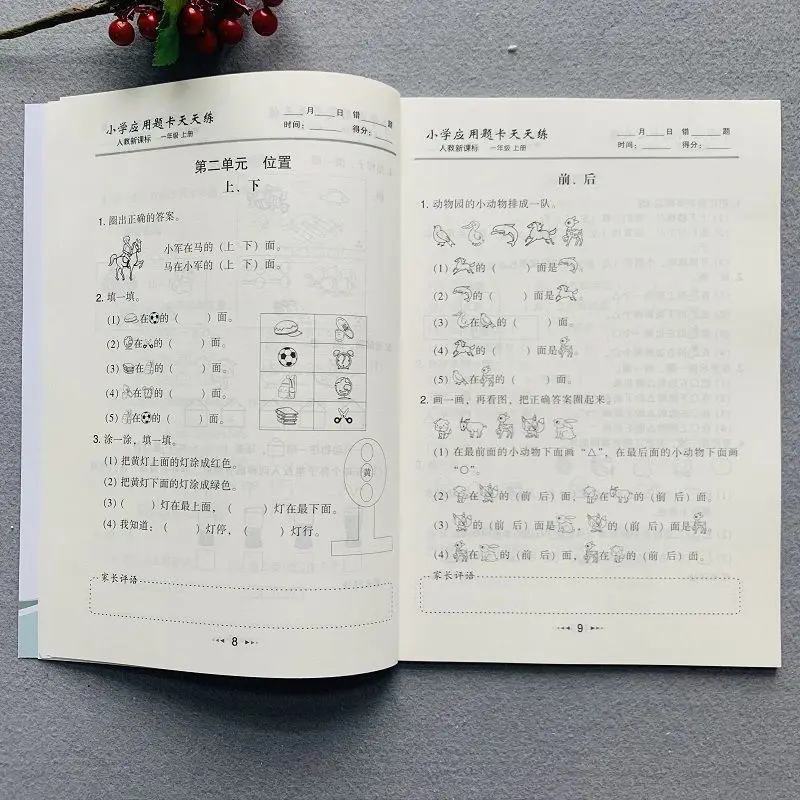 小学应用题卡天天练
人教新课标 一年级 上册
____月____日 错____题
时间：____ 得分：____
第二单元 位置
上、下
1. 圈出正确的答案。
小军在马的（上 下）面。
马在小军的（上 下）面。
2. 填一填。
(1) 在 的（ ）面。
(2) 在 的（ ）面。
(3) 在 的（ ）面。
(4) 在 的（ ）面。
(5) 在 的（ ）面。
3. 涂一涂，填一填。
(1) 把黄灯上面的灯涂成红色。
(2) 把黄灯下面的灯涂成绿色。
(3)（ ）灯在最上面，（ ）灯在最下面。
(4) 我知道：（ ）灯停，（ ）灯行。
黄
家长评语
8
小学应用题卡天天练
人教新课标 一年级 上册
____月____日 错____题
时间：____ 得分：____
前、后
1. 动物园的小动物排成一队。
(1) 的（ ）面是 。
(2) 的（ ）面是 。
(3) 在 的（ ）面。
(4) 的（ ）面是 。
(5) 在 的（ ）面。
2. 画一画，再看图，把正确答案圈起来。
(1) 在最前面的小动物下面画“△”，在最后面的小动物下面画
“○”。
(2) 在 的（前 后）面， 在 的（前 后）面。
(3) 的（前 后）面是 ， 的（前 后）面是 。
(4) 在 的（前 后）面， 在 的（前 后）面。
家长评语
9